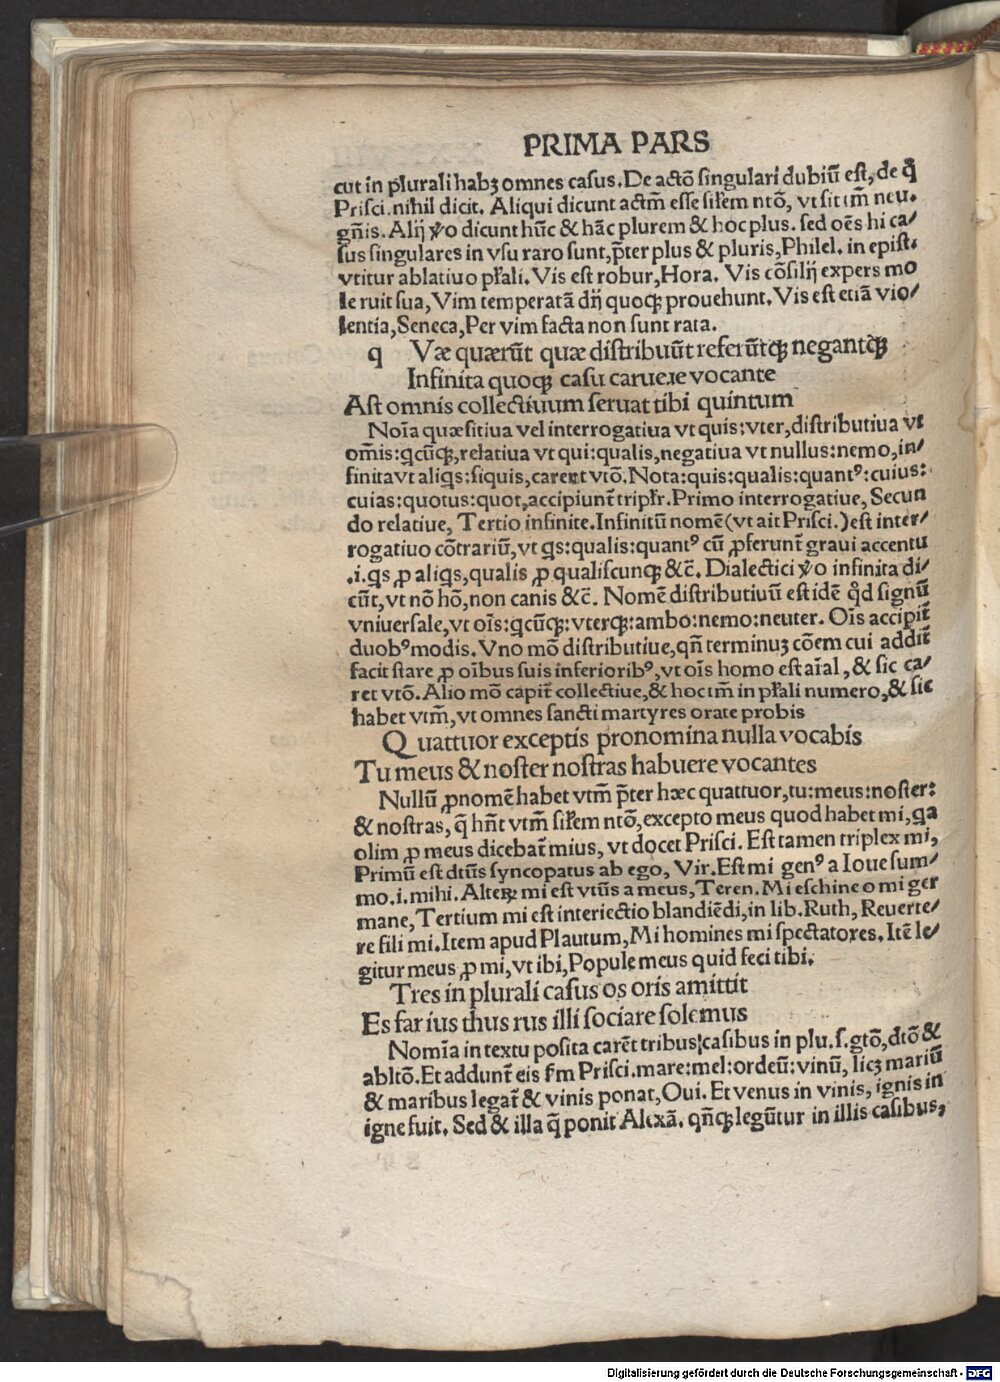 PRIMA PARS
cut in plurali habꝫ omnes casus. De actõ singulari dubiũ est, de q̃
Prisci. nihil dicit. Aliqui dicunt actm̃ esse sil̃em ntõ, vt sit tm̃ neu.
gñis. Alij ꝟo dicunt hũc & hãc plurem & hoc plus. sed oẽs hi ca/
sus singulares in vsu raro sunt, p̃ter plus & pluris, Philel. in epist.
vtitur ablatiuo pl̃ali. Vis est robur, Hora. Vis cõsilij expers mo
le ruit sua, Vim temperatã dij quoqꝫ prouehunt. Vis est etiã vio/
lentia, Seneca, Per vim facta non sunt rata.
q Væ quærũt quæ distribuũt referũtqꝫ negantqꝫ
Infinita quoqꝫ casu caruere vocante
Ast omnis collectiuum seruat tibi quintum
Noĩa quæsitiua vel interrogatiua vt quis: vter, distributiua vt
om̃is: qcũqꝫ, relatiua vt qui: qualis, negatiua vt nullus: nemo, in/
finita vt aliqs: siquis, carent vtõ. Nota: quis: qualis: quantꝰ: cuius:
cuias: quotus: quot, accipiunt̃ tripl̃r. Primo interrogatiue, Secun
do relatiue, Tertio infinite. Infinitũ nomẽ (vt ait Prisci.) est inter/
rogatiuo cõtrariũ, vt qs: qualis: quantꝰ cũ ꝓferunt̃ graui accentu
.i. qs ꝓ aliqs, qualis ꝓ qualiscunqꝫ &c̃. Dialectici ꝟo infinita di/
cũt, vt nõ hõ, non canis &c̃. Nomẽ distributiuũ est idẽ qd̃ signũ
vniuersale, vt oĩs: qcũqꝫ: vterqꝫ: ambo: nemo: neuter. Oĩs accipit̃
duobꝰ modis. Vno mõ distributiue, qñ terminuꝫ cõem cui addit̃
facit stare ꝓ oĩbus suis inferioribꝰ, vt oĩs homo est aĩal, & sic ca/
ret vtõ. Alio mõ capit̃ collectiue, & hoc tm̃ in pl̃ali numero, & sic
habet vtm̃, vt omnes sancti martyres orate probis
Quattuor exceptis pronomina nulla vocabis
Tu meus & noster nostras habuere vocantes
Nullũ ꝓnomẽ habet vtm̃ p̃ter hæc quattuor, tu: meus: noster:
& nostras, q̃ hñt vtm̃ sil̃em ntõ, excepto meus quod habet mi, qa
olim ꝓ meus dicebat̃ mius, vt docet Prisci. Est tamen triplex mi,
Primũ est dtũs syncopatus ab ego, Vir. Est mi genꝰ a Ioue sum/
mo. i. mihi. Alteꝝ mi est vtũs a meus, Teren. Mi eschine o mi ger
mane, Tertium mi est interiectio blandiẽdi, in lib. Ruth, Reuerte/
re fili mi. Item apud Plautum, Mi homines mi spectatores. Itẽ le/
gitur meus ꝓ mi, vt ibi, Popule meus quid feci tibi.
Tres in plurali casus os oris amittit
Es far ius thus rus illi sociare solemus
Nomĩa in textu posita carẽt tribus casibus in plu. s. gtõ, dtõ &
abltõ. Et addunt̃ eis s̃m Prisci. mare: mel: ordeũ: vinũ, licꝫ mariũ
& maribus legat̃ & vinis ponat, Oui. Et venus in vinis, ignis in
igne fuit. Sed & illa q̃ ponit Alexã. qñqꝫ legũtur in illis casibus,
Digitalisierung gefördert durch die Deutsche Forschungsgemeinschaft - DFG